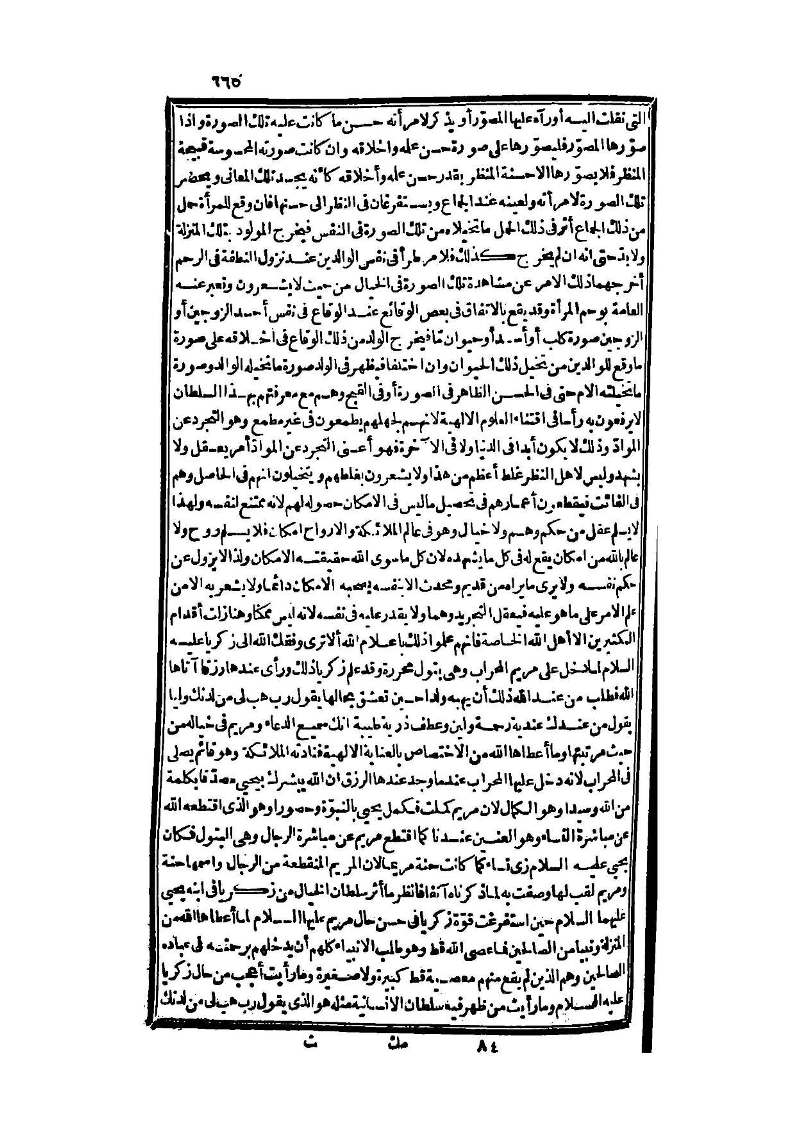 ٦٦٥
التي نقلت اليه أو رآه عليها المصوّر أو يذكر لامرأته حسن ما كانت عليه تلك الصورة واذا
صوّرها المصوّر فليصوّرها على صورة حسن علمه وأخلاقه وان كانت صورته المحسوسة قبيحة
المنظر فلا يصوّرها الاحسنة المنظر بقدر حسن علمه وأخلاقه كأنه يجسد تلك المعاني ويحضر
تلك الصورة لامرأته ولعينه عند الجماع ويستفرغان في النظر الى حسنها فان وقع للمرأة حمل
من ذلك الجماع أثر في ذلك الحمل ما تخيلاه من تلك الصورة في النفس فيخرج المولود بتلك المنزلة
ولا بد حتى انه ان لم يخرج كذلك فلامر طرأ في نفس الوالدين عند نزول النطفة في الرحم
أخرجهما ذلك الامر عن مشاهدة تلك الصورة في الخيال من حيث لا يشعرون وتعبر عنه
العامة بتوحم المرأة وقد يقع بالاتفاق في بعض الوقائع عند الوقاع في نفس أحد الزوجين أو
الزوجين صورة كلب أو أسد أو حيوان ما فيخرج الولد من ذلك الوقاع في أخلاقه على صورة
ما وقع للوالدين من تخيل ذلك الحيوان وان اختلفا فيظهر في الولد صورة ما تخيله الوالد وصورة
ما تخيلته الام حتى في الحسن الظاهر في الصورة أو في القبح وهم مع معرفتهم بهذا السلطان
لا يرفعون به رأسا في اقتناء العلوم الالهية لانهم لجهلهم يطمعون في غير مطمع وهو التجرد عن
الموادّ وذلك لا يكون أبدا في الدنيا ولا في الآخرة فهو أعني التجرد عن الموادّ أمر يعقل ولا
يشهد وليس لاهل النظر غلط أعظم من هذا ولا يشعرون بغلطهم ويتخيلون انهم في الحاصل وهم
في الفائت فيقطعون أعمارهم في تحصيل ما ليس في الامكان حصوله لهم لانه ممتنع لنفسه ولهذا
لا يسلم عقل من حكم وهم ولا خيال وهو في عالم الملائكة والارواح امكان فلا يسلم روح ولا
عالم بالله من امكان يقع له في كل ما يشهده لان كل ما سوى الله حقيقته الامكان ولذا لا يزول عن
حكم نفسه ولا يرى ما يراه من قديم ومحدث الا بنفسه فيصحبه الامكان دائما ولا يشعر به الامن
علم الامر على ما هو عليه فيعقل التجريد وهما ولا يقدر عليه في نفسه لانه ليس ممكنا وهنا زلت أقدام
الكثيرين الا أهل الله الخاصة فانهم علموا ذلك باعلام الله ألا ترى وفقك الله الى زكريا عليه
السلام لما دخل على مريم المحراب وهي بتول محررة وقد علم زكريا ذلك ورأى عندها رزقا آتاها
الله فطلب من عند الله ذلك أن يهبه ولدا حين تعشق بحالها يقول رب هب لي من لدنك وليا
يقول من عندك عندية رحمة ولين وعطف ذرية طيبة انك سميع الدعاء ومريم في خياله من
حيث مرتبتها وما أعطاها الله من الاختصاص بالعناية الالهية فنادته الملائكة وهو قائم يصلي
في المحراب لانه دخل عليها المحراب عندما وجد عندها الرزق ان الله يبشرك بيحيى مصدقا بكلمة
من الله وسيدا وهو الكمال لان مريم كملت فكمل يحيى بالنبوّة وحصورا وهو الذي اقتطعه الله
عن مباشرة النساء وهو العنين عندنا كما اقتطع مريم عن مباشرة الرجال وهي البتول فكان
يحيى عليه السلام زير نساء كما كانت حنة مريما لان المريم المنقطعة من الرجال واسمها حنة
ومريم لقب لها وصفت به لما ذكرناه آنفا فانظر ما أثر سلطان الخيال من زكريا في ابنه يحيى
عليهما السلام حين استفرغت قوّة زكريا في حسن حال مريم عليها السلام لما أعطاها الله من
المنزلة ونبيا من الصالحين فما عصى الله قط وهو طالب الانبياء كلهم أن يدخلهم برحمته في عباده
الصالحين وهم الذين لم يقع منهم معصية قط كبيرة ولا صغيرة وما رأيت أعجب من حال زكريا
عليه السلام وما رأيت من ظهر فيه سلطان الانسانية مثله هو الذي يقول رب هب لي من لدنك
٨٤ مك ت